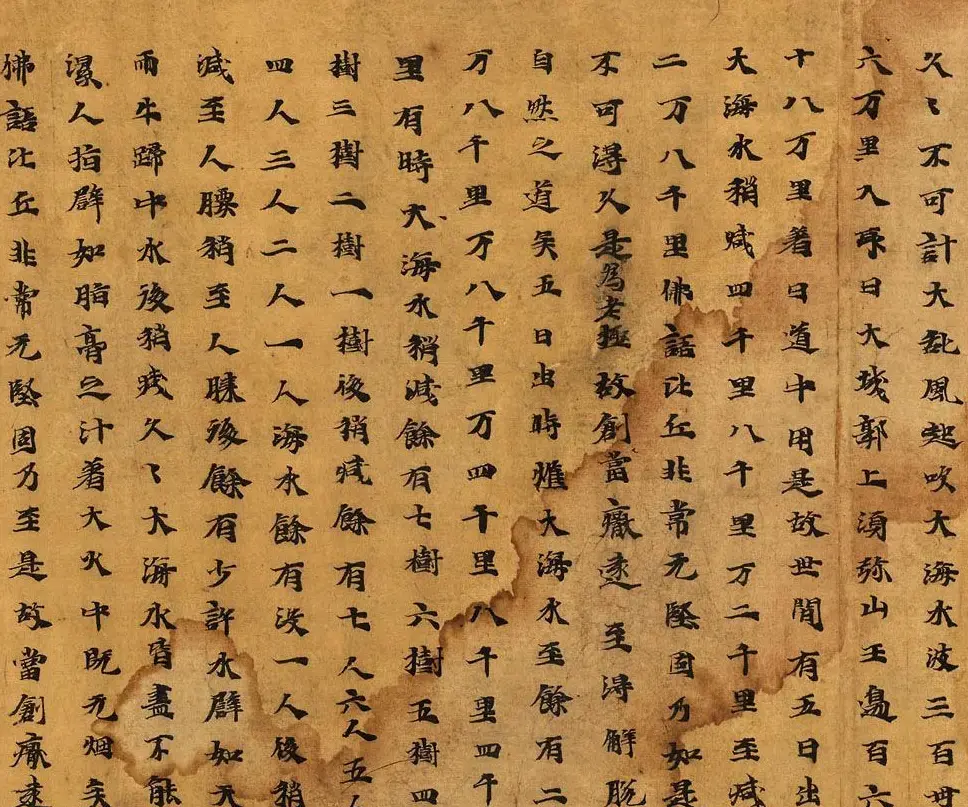 久〻不可計大亂風起吹大海水波三百丗
六万里入取日大城郭上湏弥山王邊百六
十八万里着日道中用是故世間有五日出
大海水稍減四千里八千里万二千里至減
二万八千里佛語比丘非常无堅固乃如是
不可得久是為老極故創當厭遠至得解脫
自然之道矣五日出時爀大海水至餘有二
万八千里万八千里万四千里八千里四千
里有時大海水稍減餘有七樹六樹五樹四
樹三樹二樹一樹後稍減餘有七人六人五人
四人三人二人一人海水餘有沒一人後稍
減至人腰稍至人膝後餘有少許水譬如天
雨牛蹄中水後稍減久〻大海水皆盡不能
濡人指譬如脂膏之汁著大火中既无烟矣
佛語比丘非常无堅固乃至是故當創厭遠